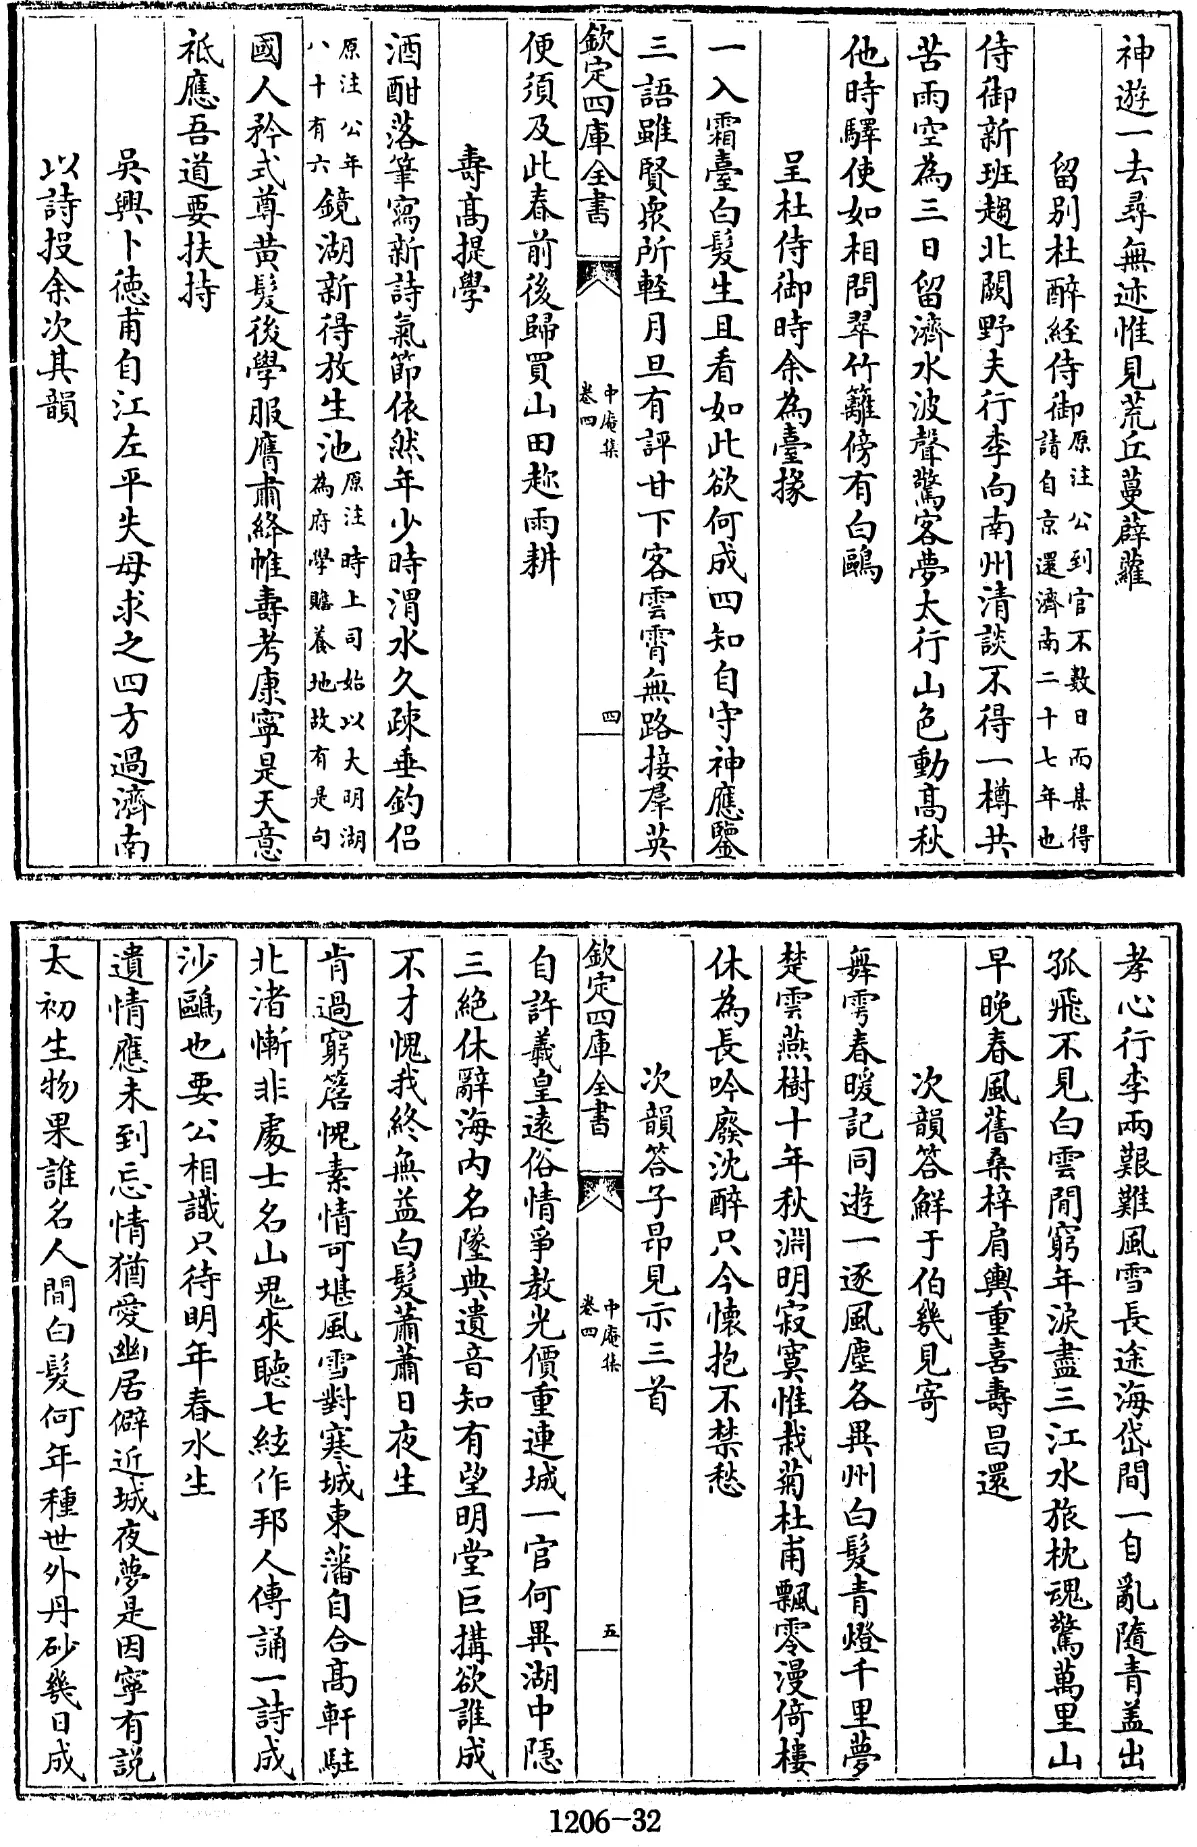 神遊一去尋無迹惟見荒丘蔓薜蘿
留別杜醉經侍御原注公到官不數日而某得請自京還濟南二十七年也
侍御新班趨北闕野夫行李向南州清談不得一樽共
苦雨空為三日留濟水波聲驚客夢太行山色動高秋
他時驛使如相問翠竹籬傍有白鷗
呈杜侍御時余為臺掾
一入霜臺白髮生且看如此欲何成四知自守神應鑒
三語雖賢衆所輕月旦有評甘下客雲霄無路接羣英
欽定四庫全書
中庵集
卷四
四
便須及此春前後歸買山田趂雨耕
壽髙提學
酒酣落筆寫新詩氣節依然年少時渭水久疎垂釣侣
原注公年八十有六鏡湖新得放生池原注時上司始以大明湖為府學贍養地故有是句
國人矜式尊黄髮後學服膺肅絳帷壽考康寧是天意
祗應吾道要扶持
吳興卜德甫自江左平失母求之四方過濟南
以詩投余次其韻
孝心行李兩艱難風雪長途海岱間一自亂隨青盖出
孤飛不見白雲閒窮年淚盡三江水旅枕魂驚萬里山
早晩春風舊桑梓肩輿重喜壽昌還
次韻答鮮于伯幾見寄
舞雩春暖記同遊一逐風塵各異州白髮青燈千里夢
楚雲燕樹十年秋淵明寂寞惟栽菊杜甫飄零漫倚樓
休為長吟廢沈醉只今懷抱不禁愁
次韻答子昂見示三首
欽定四庫全書
中庵集
卷四
五
自許羲皇遠俗情爭教光價重連城一官何異湖中隠
三絶休辭海内名墜典遺音知有望明堂巨搆欲誰成
不才愧我終無益白髮蕭蕭日夜生
肯過窮簷愧素情可堪風雪對寒城東藩自合髙軒駐
北渚慚非處士名山鬼來聽七絃作邦人傳誦一詩成
沙鷗也要公相識只待明年春水生
遺情應未到忘情猶愛幽居僻近城夜夢是因寧有説
太初生物果誰名人間白髮何年種世外丹砂幾日成
1206-32